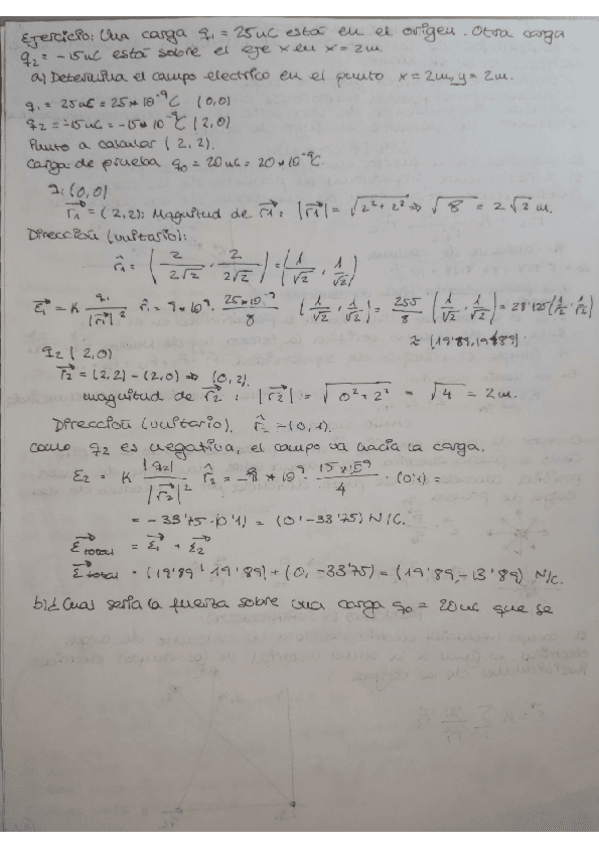 Ejercicio: Una carga q1 = 25uC está en el origen. Otra carga
q2 = -15uC está sobre el eje x en x = 2m.
a) Determina el campo electrico en el punto x = 2m, y = 2m.
q1 = 25uC = 25*10^-9 C (0,0)
q2 = -15uC = -15*10^-9 C (2,0)
Punto a calcular (2,2).
Carga de prueba q0 = 20uC = 20*10^-9 C.
q1 (0,0)
r1 = (2,2): Magnitud de r1: |r1| = √2²+2² ⇒ √8 = 2√2 m.
Dirección (unitario):
r̂1 = (2/2√2, 2/2√2) = (1/√2, 1/√2)
E1 = K q1/|r1|² r̂1 = 9*10^9 · 25*10^-9/8 (1/√2, 1/√2) = 255/8 (1/√2, 1/√2) = 28'125 (1/√2, 1/√2)
≈ (19'89, 19'89).
q2 (2,0)
r2 = (2,2) - (2,0) ⇒ (0,2).
magnitud de r2: |r2| = √0²+2² = √4 = 2m.
Dirección (unitario). r̂2 = (0,1).
como q2 es negativa, el campo va hacia la carga.
E2 = K |q2|/|r2|² r̂2 = -9*10^9 · 15*10^-9/4 · (0,1) =
= -33'75 · (0,1) = (0, -33'75) N/C.
E total = E1 + E2
E total = (19'89, 19'89) + (0, -33'75) = (19'89, -13'89) N/C.
b) ¿Cual seria la fuerza sobre una carga q0 = 20uC que se